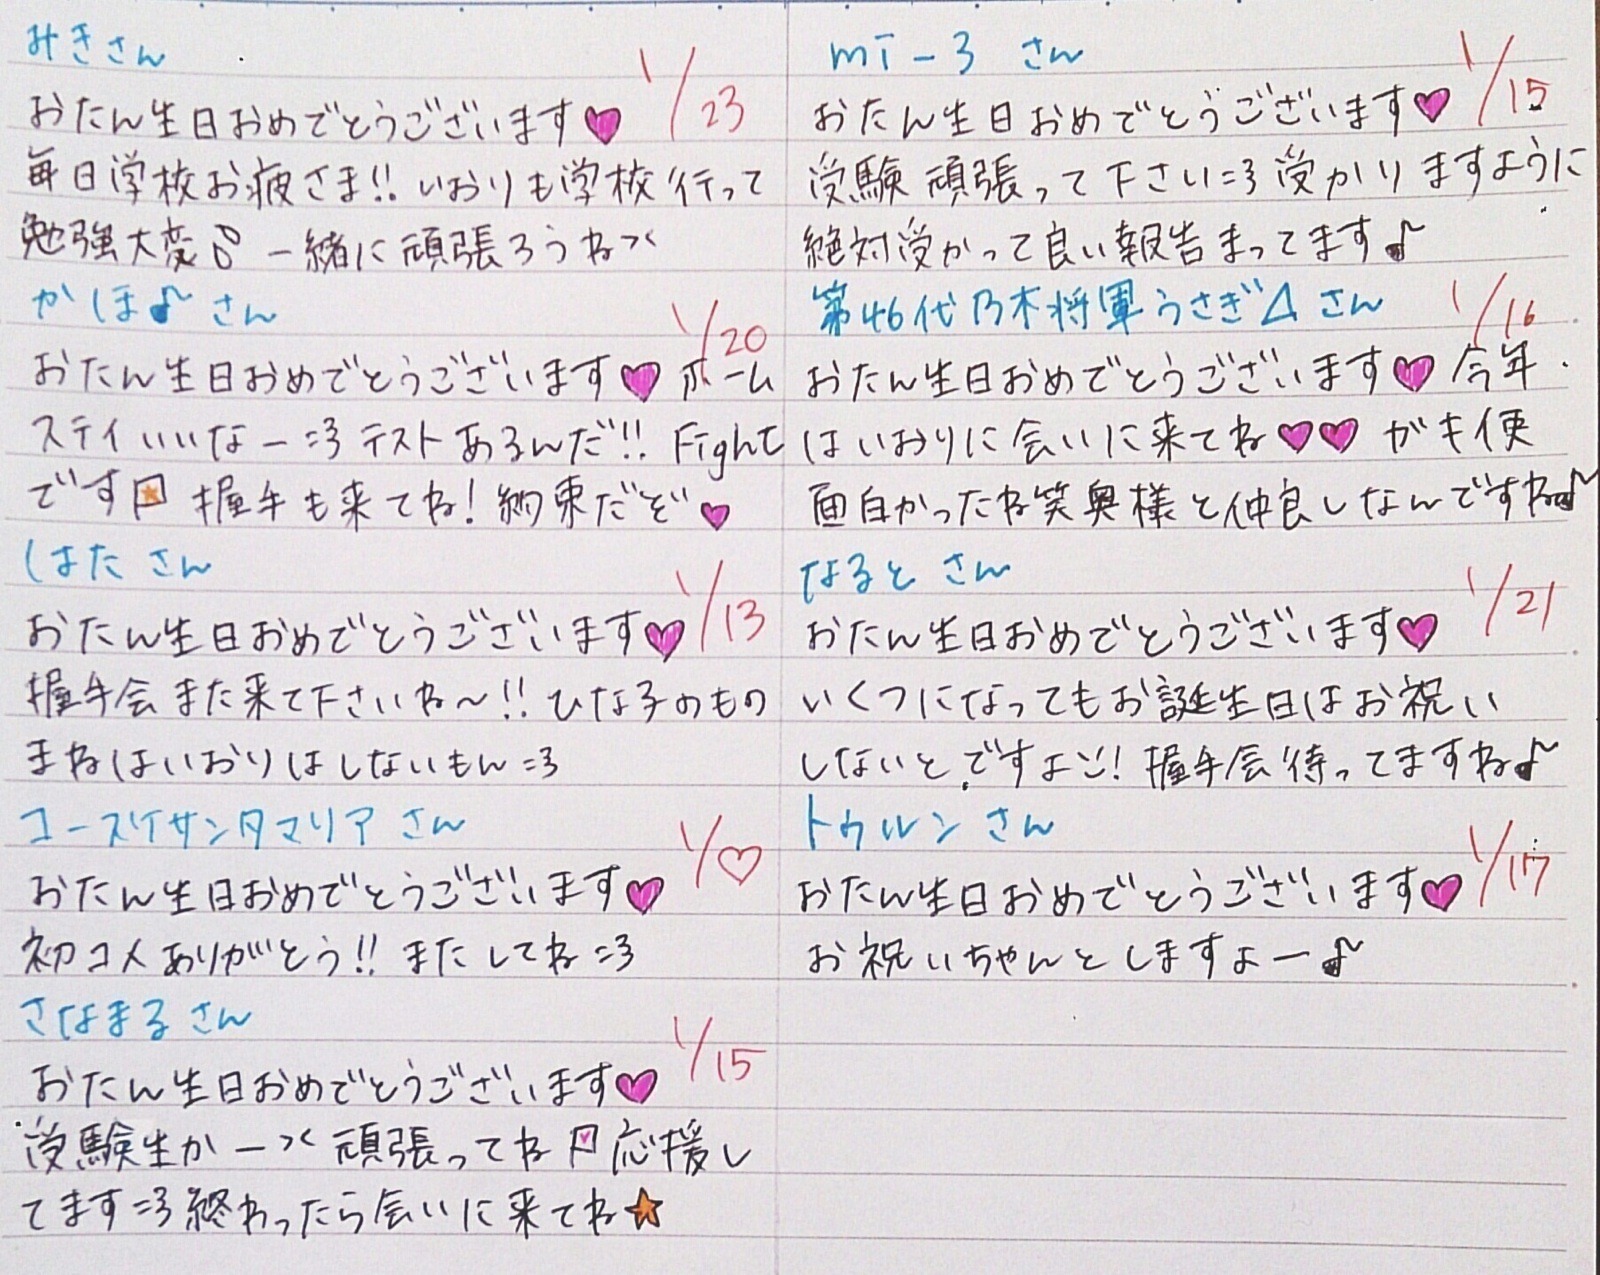 みきさん
1/23
おたん生日おめでとうございます♥
毎日学校お疲さま!! いおりも学校行って
勉強大変 一緒に頑張ろうね
かほ♪さん
1/20
おたん生日おめでとうございます♥ ホーム
ステイいいなー=3 テストあるんだ!! Fight
です 握手も来てね! 約束だぞ♥
しはたさん
1/13
おたん生日おめでとうございます♥
握手会また来て下さいね〜!! ひな子のもの
まねはいおりはしないもん=3
コースケサンタマリアさん
1/♡
おたん生日おめでとうございます♥
初コメありがとう!! またしてね=3
さなまるさん
1/15
おたん生日おめでとうございます♥
受験生かー 頑張ってね 応援し
てます=3 終わったら会いに来てね★
mi-3 さん
1/15
おたん生日おめでとうございます♥
受験頑張って下さい=3 受かりますように
絶対受かって良い報告まってます♪
第46代乃木将軍うさぎ△さん
1/16
おたん生日おめでとうございます♥ 今年
はいおりに会いに来てね♥♥ がも便
面白かったね笑 奥様と仲良しなんですね♪
なるとさん
1/21
おたん生日おめでとうございます♥
いくつになってもお誕生日はお祝い
しないとですよ! 握手会待ってますね♪
トゥルンさん
1/17
おたん生日おめでとうございます♥
お祝いちゃんとしますよー♪